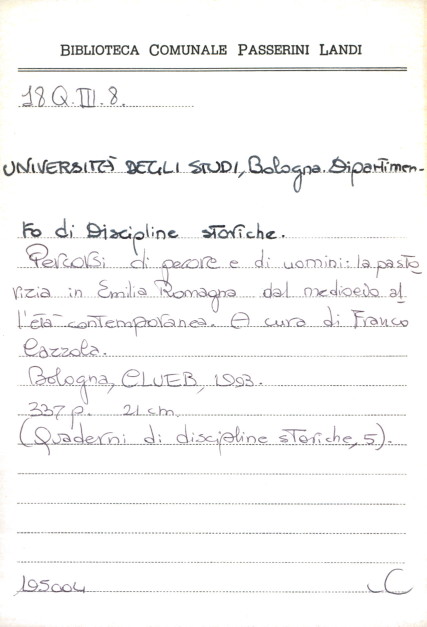 BIBLIOTECA COMUNALE PASSERINI LANDI
18 Q.III.8.
UNIVERSITÀ DEGLI STUDI, Bologna. Dipartimen-
to di Discipline storiche.
Percorsi di pecore e di uomini: la pasto
rizia in Emilia Romagna dal medioevo al
l'età contemporanea. A cura di Franco
Cazzola.
Bologna, CLUEB, 1993.
337 p. 21 cm.
(Quaderni di discipline storiche, 5).
195004 C